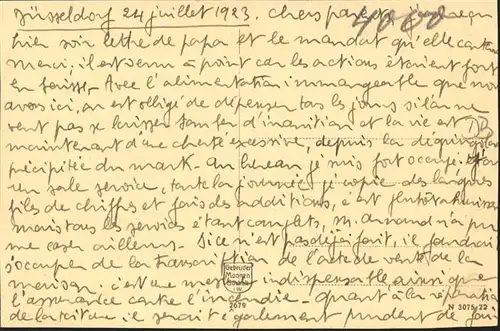 Düsseldorf 24 juillet 1923. Chers parents, j'ai reçu
hier soir lettre de papa et le mandat qu'elle contenait
merci, il est venu à point car les actions étaient fort
en baisse. Avec l'alimentation immangeable que nous
avons ici, on est obligé de dépenser tous les jours si l'on ne
veut pas se laisser tomber d'inanition et la vie est
maintenant d'une cherté excessive, depuis la dégringolade
précipitée du mark. Au bureau je suis fort occupé
sale service, toute la journée je copie des longues
files de chiffres et fais des additions, c'est
mais tous les services étant complets, M. Arnaud n'a pu
me caser ailleurs. Si ce n'est pas déjà fait, il faudrait
s'occuper de la transcription de l'acte de vente de la
maison, c'est une mesure indispensable, ainsi que
l'assurance contre l'incendie. Quant à la réparation
de la toiture il serait également prudent de
4060
DB
Gebruder
Maonen
2679
N 3075/22